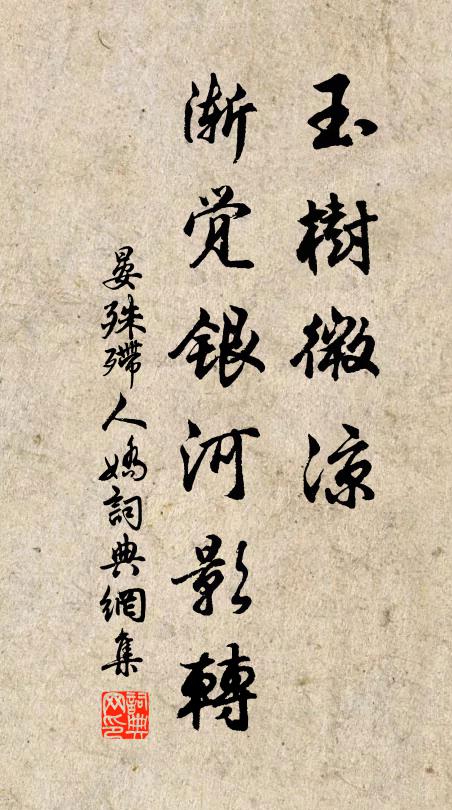 玉樹微涼
漸覚銀河影轉
晏殊殢人嬌詞典網集
詞典网印